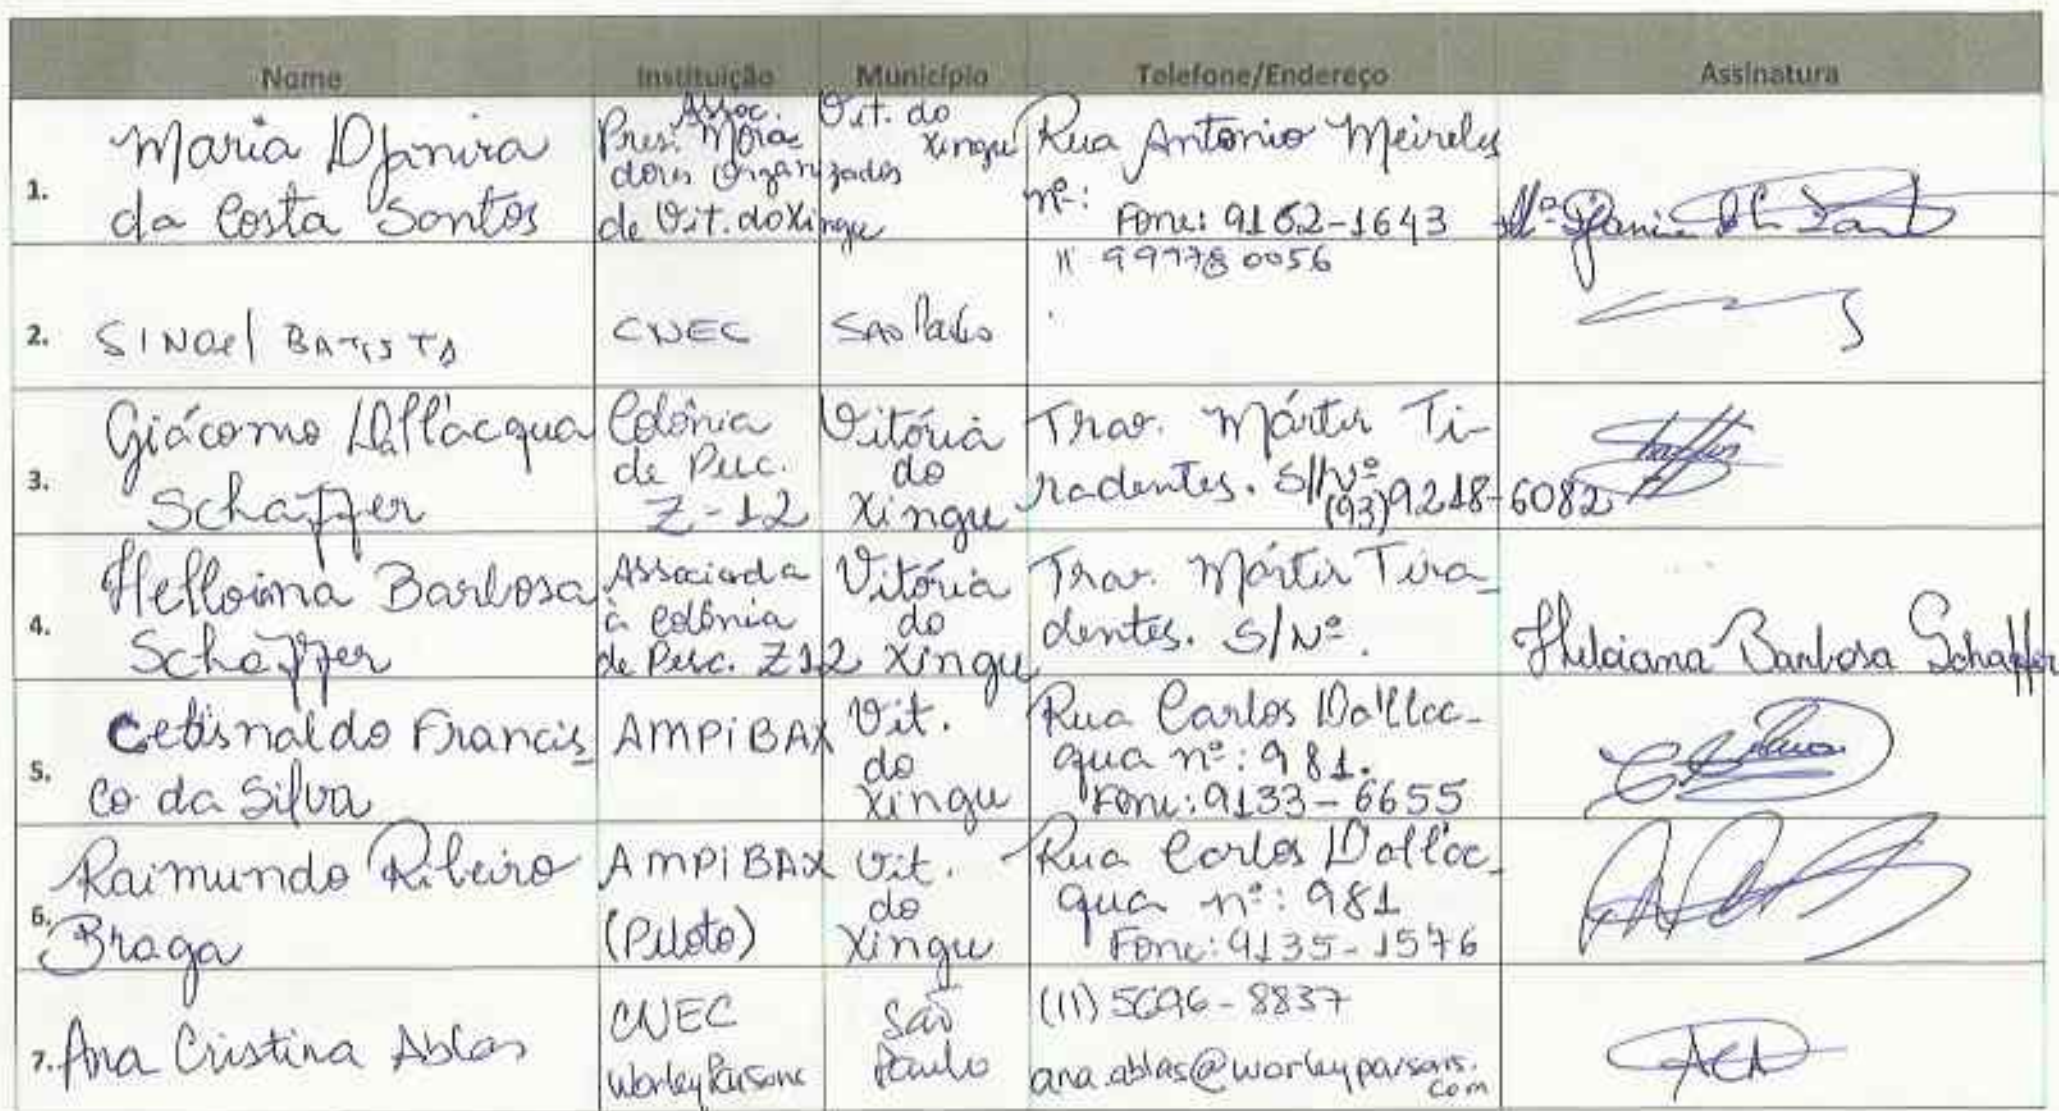 Nome Instituição Município Telefone/Endereço Assinatura
1.
Maria Djanira
da Costa Santos
Assoc.
Pres. Mora-
dores Organizados
de Vit. do Xingu
Vit. do
Xingu
Rua Antonio Meireles
nº:
Fone: 9162-1643
2.
SINOEL BATISTA
CNEC
São Paulo
11 997780056
3.
Giácomo Dall'acqua
Schaffer
Colônia
de Pesc.
Z-12
Vitória
do
Xingu
Trav. Mártir Ti-
radentes. S/Nº
(93)9218-6082
4.
Helloima Barbosa
Schaffer
Associada
à colônia
de Pesc. Z12
Vitória
do
Xingu
Trav. Mártir Tira-
dentes. S/Nº.
Barbosa Schaffer
5.
Francis-
co da Silva
AMPIBAX
Vit.
do
Xingu
Rua Carlos Dallac-
qua nº: 981.
Fone: 9133-6655
6.
Raimundo Ribeiro
Braga
AMPIBAX
(Piloto)
Vit.
do
Xingu
Rua Carlos Dallac-
qua nº: 981
Fone: 9135-1576
7.
Ana Cristina Ablas
CNEC
WorleyParsons
São
Paulo
(11) 5696-8837
ana.ablas@worleyparsons.
com
ACA